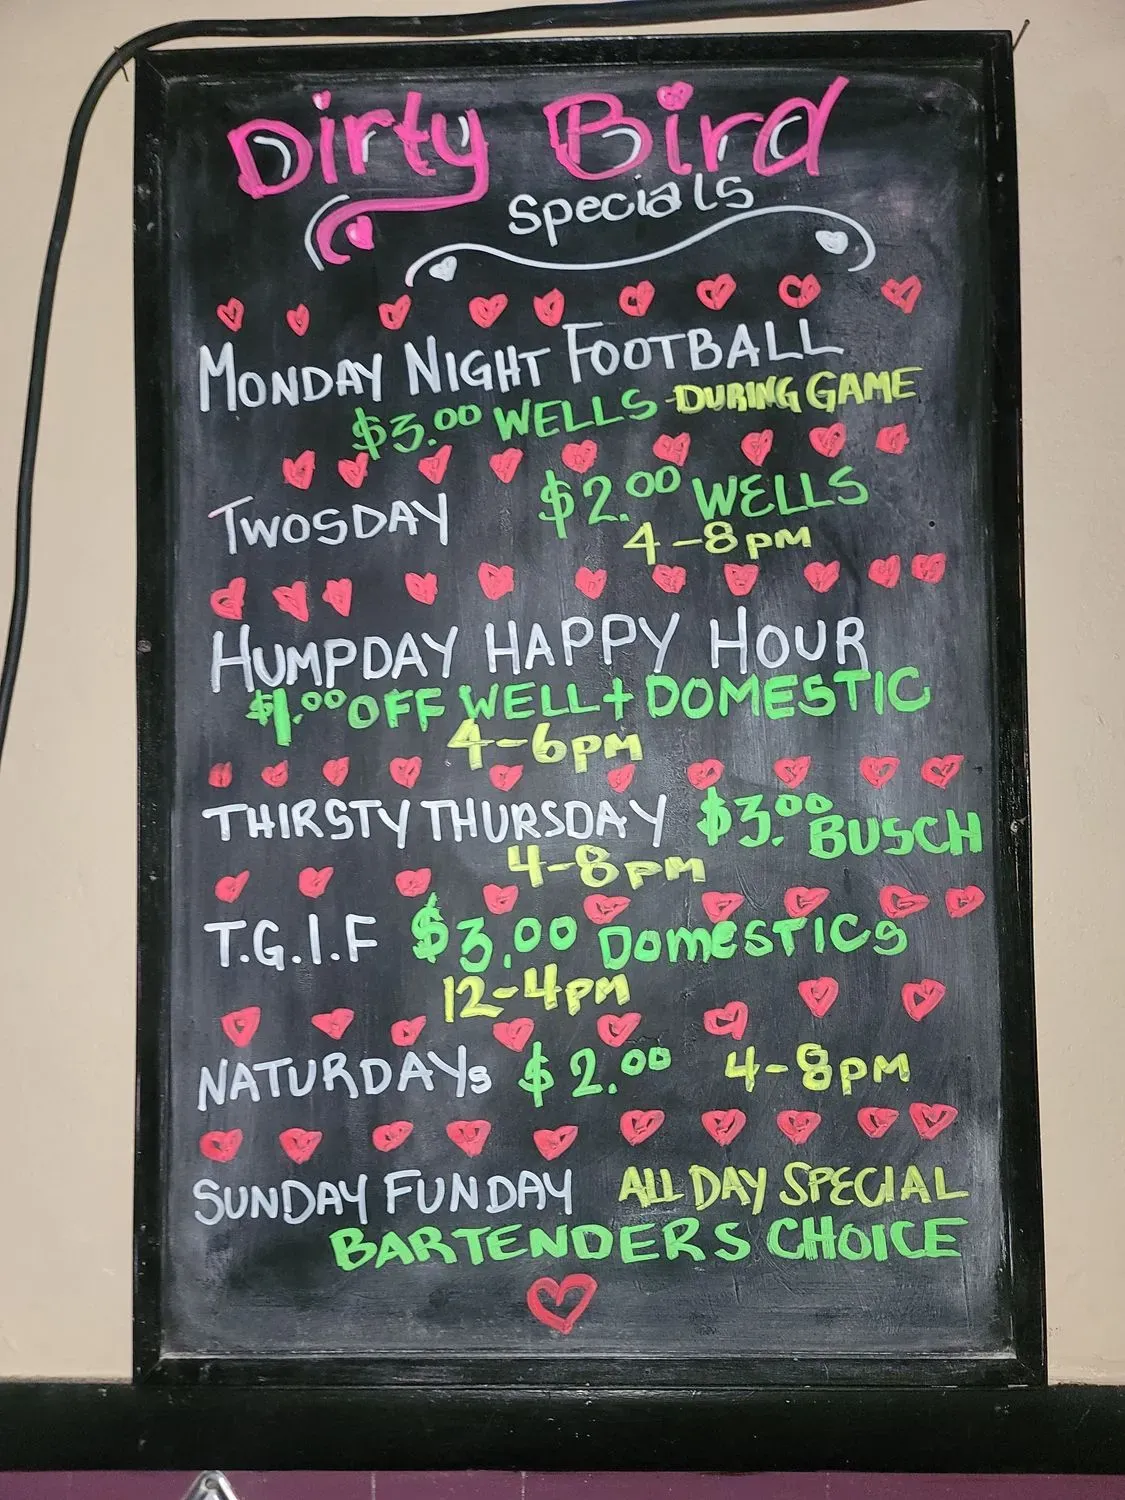 Dirty Bird
Specials
MONDAY NIGHT FOOTBALL
$3.00 WELLS - DURING GAME
TWOSDAY $2.00 WELLS
4-8pm
HUMPDAY HAPPY HOUR
$1.00 OFF WELL + DOMESTIC
4-6pm
THIRSTY THURSDAY $3.00 BUSCH
4-8pm
T.G.I.F $3.00 DOMESTICs
12-4pm
NATURDAYs $2.00 4-8pm
SUNDAY FUNDAY ALL DAY SPECIAL
BARTENDERS CHOICE